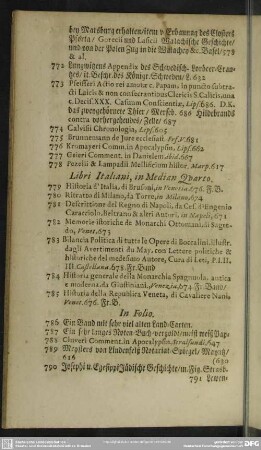 bey Marsburg erhalten/item v. Erbauung des Closters
Pforta/ Gorecii und Lasicii Walachische Geschichte/
und von der Polen Zug in die Wallachey &c. Basel/ 578
& al.
772 Lungwitzens Appendix des Schwedisch-Lorbeer-Cran-
tzes/ it. Beschr. des Königr. Schweden/ L. 632
773 Pfeifferi Actio rei amotæ c. Papam, in puncto subtra-
cti Laicis & non consecrantibus Clericis S. Calicis, una
c. Decis. XXX. Casuum Conscientiæ, Lips/ 686. D. K.
das zweygehörnete Thier/ Mersb. 686 Hildebrands
contra vorhergehendes/ Zelle/ 687
774 Calvisii Chronologia, Lips/ 605
775 Brunnemann de Jure ecclesiast. Fcf. V/ 681
776 Kromayeri Comm. in Apocalypsin, Lips/ 662
777 Geieri Comment. in Danielem. ibid. 667
778 Pezelii & Lampadii Mellificium histor. Marp. 617
Libri Italiani, in Median Quarto.
779 Historia d'Italia, di Brusoni, in Venetia 676. F. B.
780 Ritratto di Milano, da Torre, in Milano, 674
781 Descrittione del Regno di Napoli, da Ces. d'Eugenio
Caracciolo, Beltrano & altri Autori, in Napoli, 671
782 Memorie istoriche de Monarchi Ottomani, di Sagre-
do, Venet. 673
783 Bilancia Politica di tutte le Opere di Boccalini, illustr.
dagli Avertimenti da May, con Lettere politiche &
historiche del medesimo Autore, Cura di Leti, P. I. II.
III Castellana. 678. Fr. Band
784 Historia generale della Monarchia Spagnuola, antica
e moderna, da Giustiniani, Venetia, 674. Fr. Band/
785 Historia della Republica Veneta, di Cavaliere Nani,
Venet. 676. Fr. B.
In Folio.
786 Ein Band mit sehr viel alten Land-Carten.
787 Ein sehr langes Noten-Buch/ vergoldt/ meist weiß Pap.
788 Cluveri Comment. in Apocalypsin, Stralsund. 647
789 Meysters von Lindenfels Notariat-Spiegel/ Maynz/
636 (630
790 Josephi u. Egesippi Jüdische Geschichte/ m. Fig. Strasb.
791 Leuen-